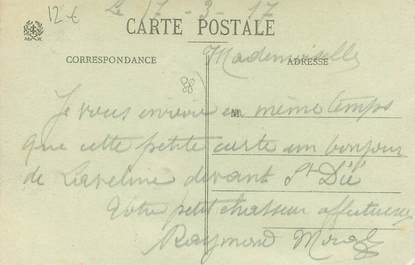 12 €
Le 17-3-17
CARTE POSTALE
Mademoiselle
CORRESPONDANCE
ADRESSE
Je vous envoie en même temps
M
que cette petite carte un bonjour
de Laveline devant St Dié
Votre petit chasseur affectueux
Raymond